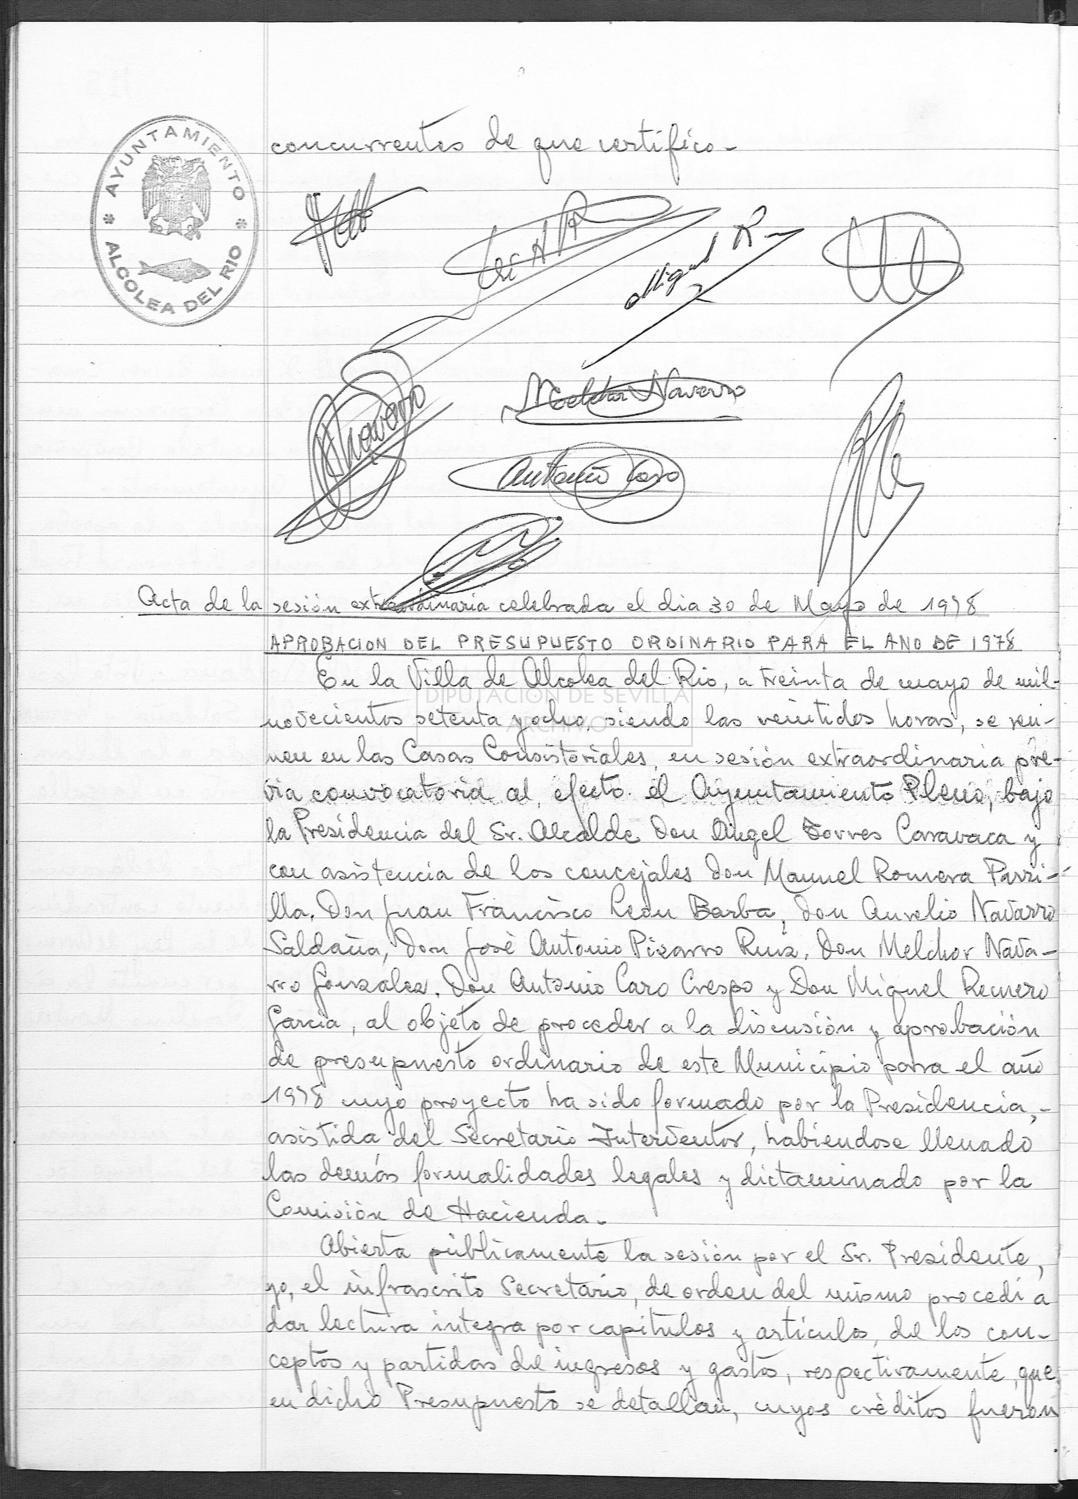 concurrentes de que certifico-
AYUNTAMIENTO
ALCOLEA DEL RIO
Miguel R
Navarro
Melchor Navarro
Antonio Caro
Acta de la sesión extraordinaria celebrada el dia 30 de Mayo de 1978
APROBACION DEL PRESUPUESTO ORDINARIO PARA EL AÑO DE 1978
En la Villa de Alcolea del Rio, a treinta de mayo de mil-
novecientos setenta y ocho, siendo las veintidos horas, se reu-
nen en las Casas Consistoriales, en sesión extraordinaria pre-
via convocatoria al efecto el Ayuntamiento Pleno, bajo
la Presidencia del Sr. Alcalde Don Angel Torres Carravaca y
con asistencia de los concejales Don Manuel Romera Parri-
lla, Don Juan Francisco León Barba, don Aurelio Navarro
Saldaña, Don José Antonio Pizarro Ruiz, Don Melchor Nava-
rro González, Don Antonio Caro Crespo y Don Miguel Recuero
Garcia, al objeto de proceder a la discusión y aprobación
de presupuesto ordinario de este Municipio para el año
1978 cuyo proyecto ha sido formado por la Presidencia,-
asistida del Secretario Interventor, habiendose llenado
las demás formalidades legales y dictaminado por la
Comisión de Hacienda.-
Abierta públicamente la sesión por el Sr. Presidente,
yo, el infrascrito Secretario, de orden del mismo procedí a
dar lectura integra por capítulos y artículos, de los con-
ceptos y partidas de ingresos y gastos, respectivamente, que
en dicho Presupuesto se detallan, cuyos créditos fueron
DIPUTACIÓN DE SEVILLA
ARCHIVO